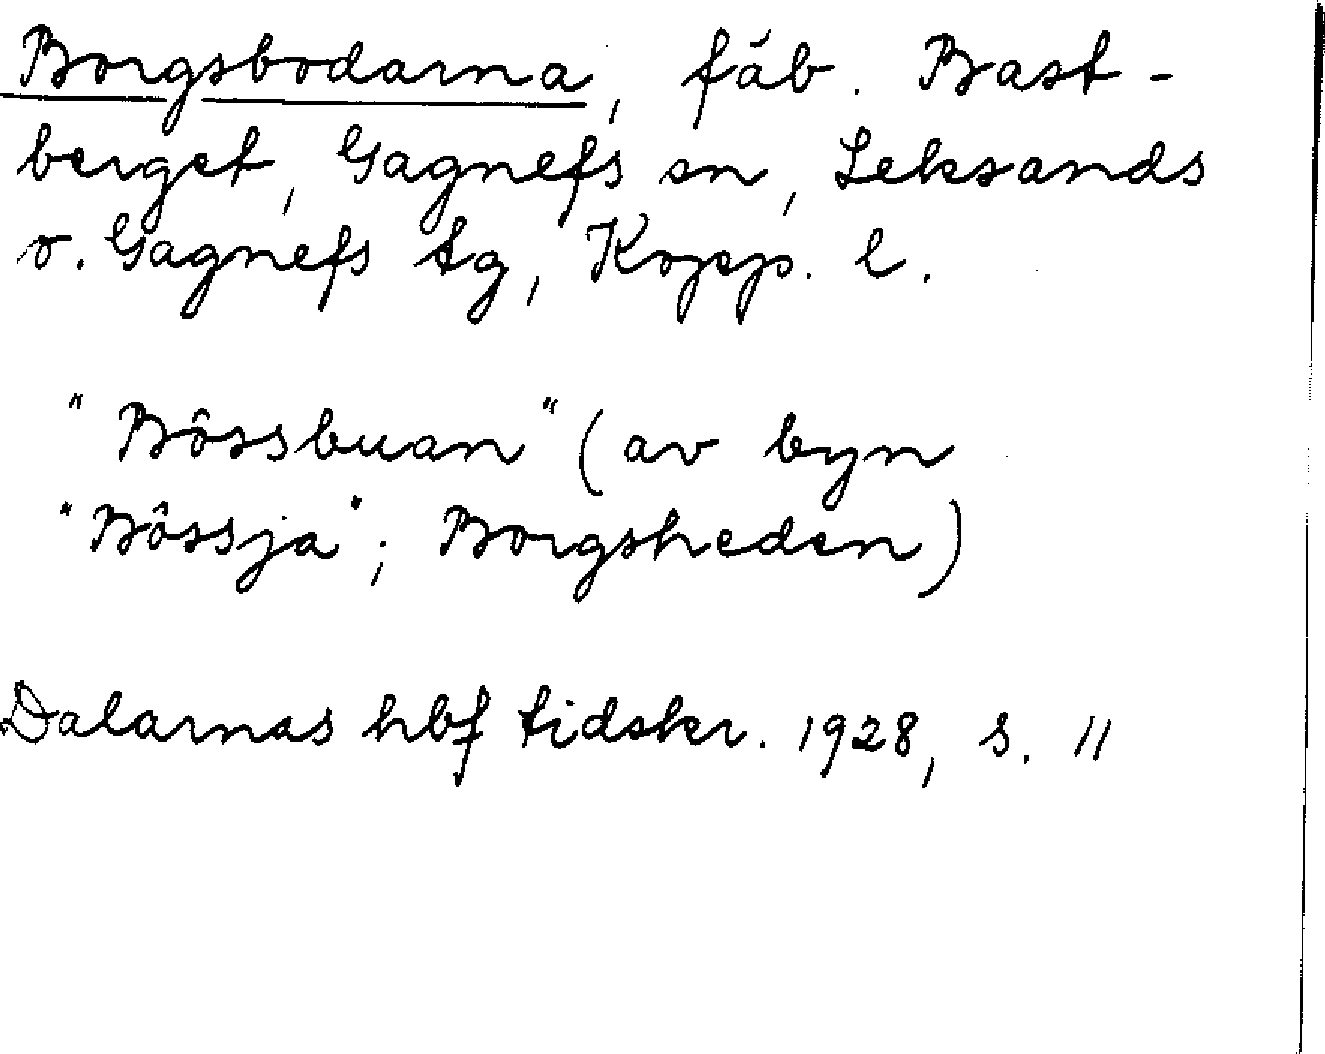 Borgsbodarna, fäb. Bast-
berget, Gagnefs sn, Leksands
o. Gagnefs tg, Kopp. l.
"Bôssbuan" (av byn
"Bôssja"; Borgsheden)
Dalarnas hbf tidskr. 1928, s. 11